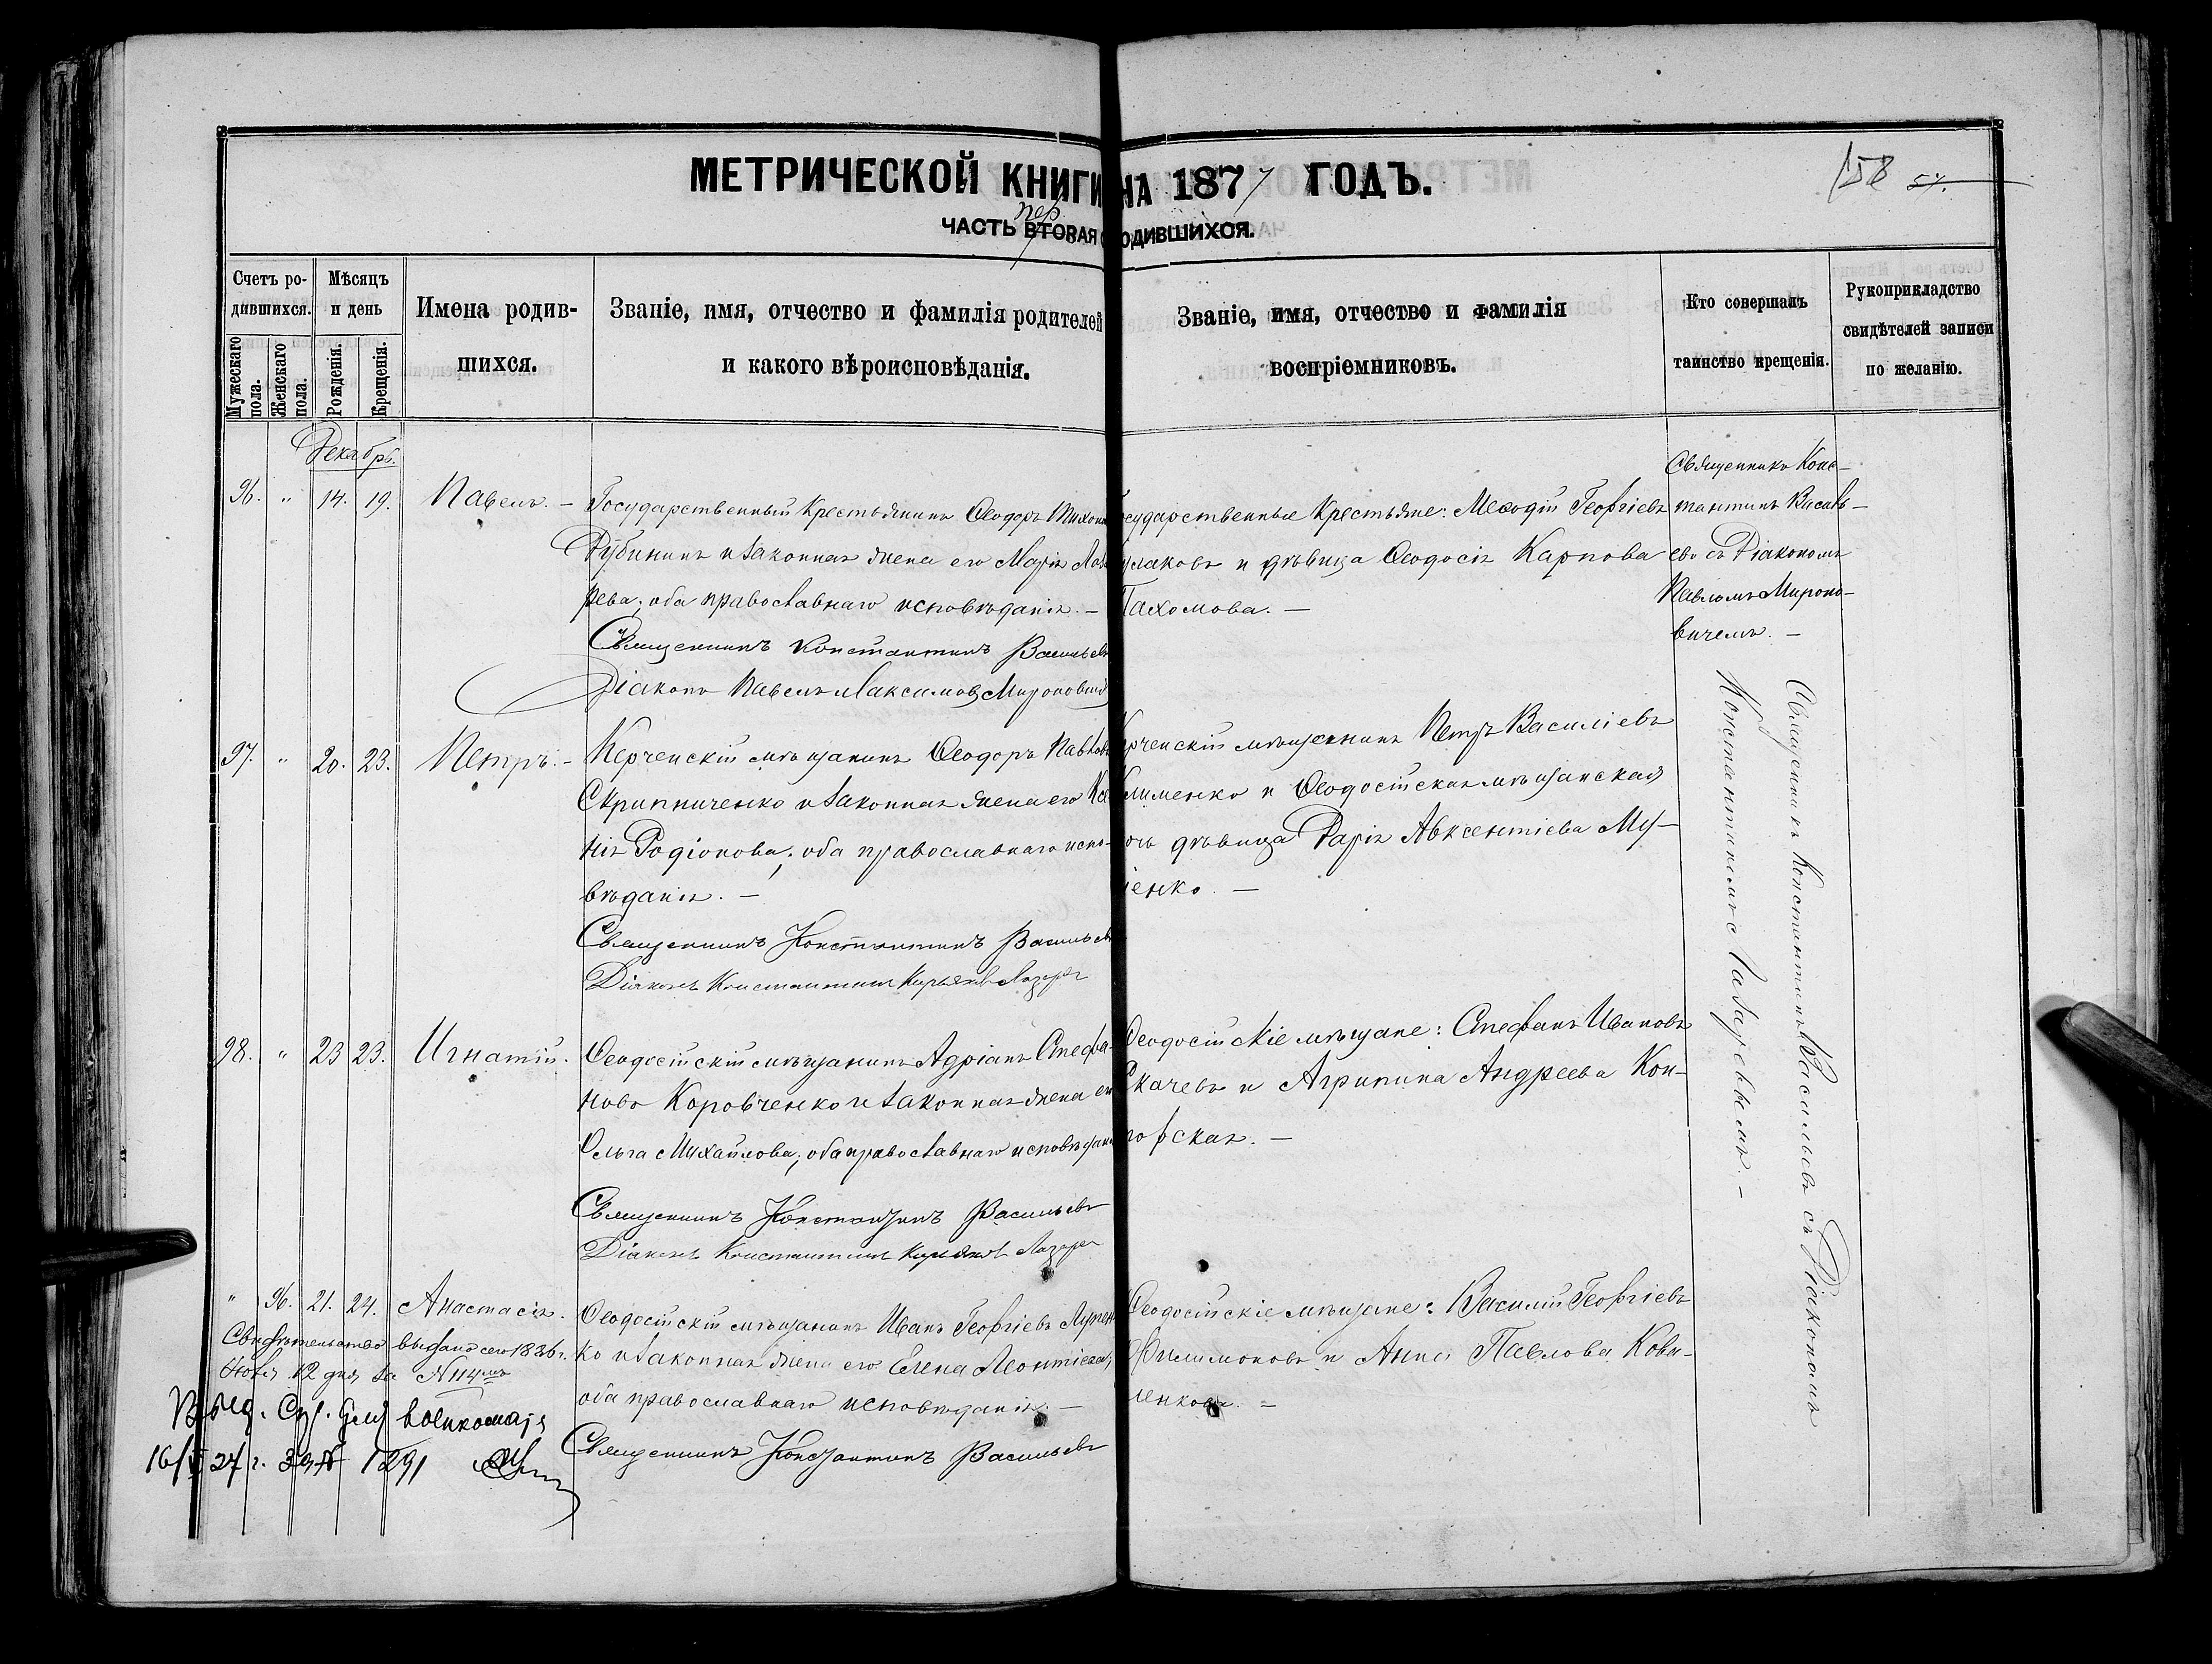 МЕТРИЧЕСКОЙ КНИГИ НА 1877 ГОДЪ.
158 54.
пер
ЧАСТЬ ВТОРАЯ О РОДИВШИХСЯ.
Счетъ родившихся.
Мужескаго пола.
Женскаго пола.
Мѣсяцъ и день
Рожденія.
Крещенія.
Имена родившихся.
Званіе, имя, отчество и фамилія родителей
и какого вѣроисповѣданія.
Званіе, имя, отчество и фамилія
воспріемниковъ.
Кто совершалъ
таинство крещенія.
Рукоприкладство
свидѣтелей записи
по желанію.
Декабрь.
96. " 14. 19. Павелъ. –
Государственный Крестьянинъ Ѳеодоръ Тихоно
Дубининъ и законная жена его Марія Лаза
рева; оба православнаго исповѣданія. –
Священникъ Константинъ Васильевъ
Діаконъ Павелъ Максимовъ Мироновичъ
осударственные Крестьяне: Меѳодій Георгіевъ
улаковъ и дѣвица Ѳеодосія Карпова
Пахомова. –
Священникъ Конс–
тантинъ Василь–
евъ съ Діакономъ
Павломъ Мироно–
вичемъ. –
97. " 20. 23. Петръ. –
Керченскій мѣщанинъ Ѳеодоръ Павлов
Скрипниченко и законная жена его Ксе
нія Родіонова; оба православнаго испо–
вѣданія. –
Священникъ Константинъ Васильевъ
Діаконъ Константинъ Кирьяковъ Лазаре
ерченскій мѣщанинъ Петръ Василіевъ
Клименко и Ѳеодосійская мѣщанская
очь дѣвица Дарія Авксентіева Му–
іенко. –
Священникъ Константинъ Васильевъ съ Діакономъ
Константиномъ Лазаревымъ. –
98. " 23 23. Игнатій.
Ѳеодосійскій мѣщанинъ Адріанъ Стефа–
новъ Коровченко и законная жена ег
Ольга Михайлова; оба православнаго исповѣдані
Священникъ Константинъ Васильевъ
Діаконъ Константинъ Кирьяковъ Лазаре
Ѳеодосійскіе мѣщане: Стефанъ Ивановъ
Скачевъ и Агрипина Андреева Кон–
горская. –
" 96. 21. 24. Анастасія.
Ѳеодосійскій мѣщанинъ Иванъ Георгіевъ
ко и законная жена его Елена Леонтіева;
оба православнаго исповѣданія. –
Священникъ Константинъ Васильевъ
Ѳеодосійскіе мѣщане: Василій Георгіевъ
Филимоновъ и Анна Павлова Кова–
ленкова. =
Свидѣтельство выдано сего 1896 г.
Ноября 12 дня за № 114мъ
Выд. для военкомата
16/ 27 г. за № 1291